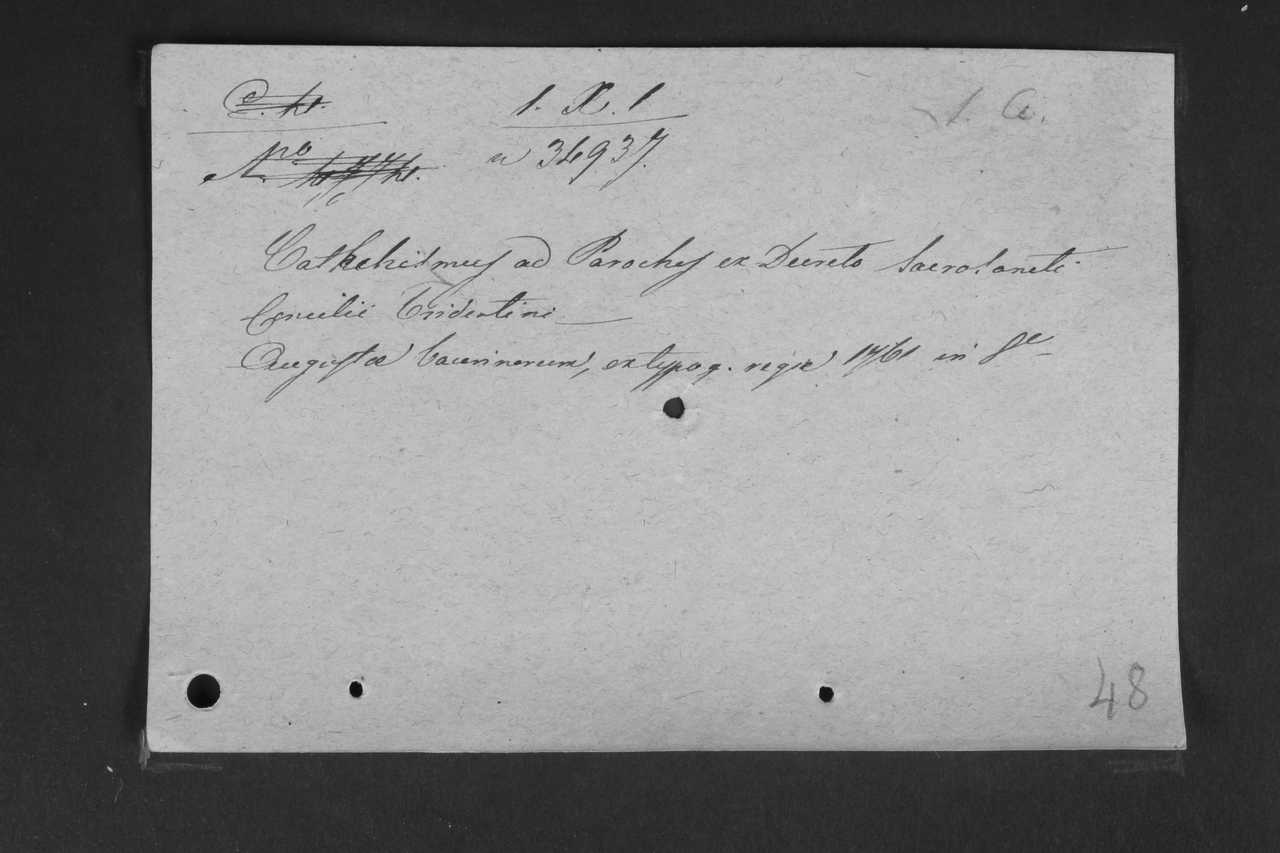 1. X. 1
1. A.
Nro
n 34937.
Cathehismus ad Parochos ex Decreto Sacrosancti
Concilii Tridentini
Augustæ Taurinorum, ex typog. regiæ 1761 in 8º
48